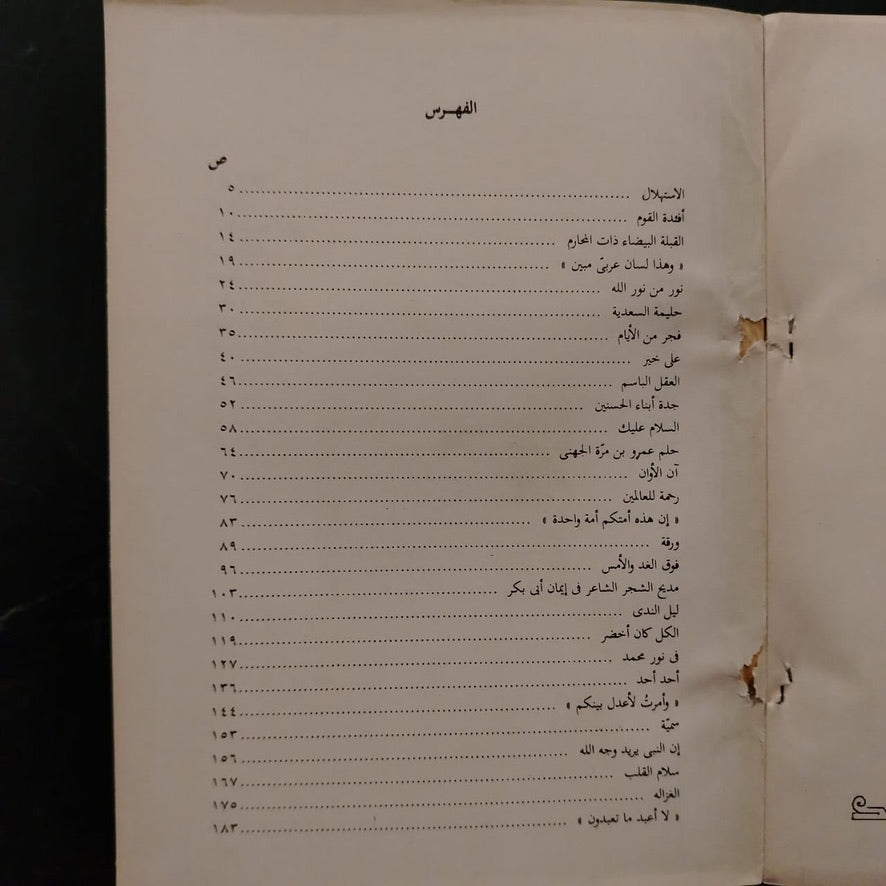 الفهـرس
ص
الاستهلال ........ ٥
أفئدة القوم ........ ١٠
القبلة البيضاء ذات المحارم ........ ١٤
« وهذا لسان عربىّ مبين » ........ ١٩
نور من نور الله ........ ٢٤
حليمة السعدية ........ ٣٠
فجر من الأيام ........ ٣٥
على خير ........ ٤٠
العقل الباسم ........ ٤٦
جدة أبناء الحسنين ........ ٥٢
السلام عليك ........ ٥٨
حلم عمرو بن مرّة الجهنى ........ ٦٤
آن الأوان ........ ٧٠
رحمة للعالمين ........ ٧٦
« إن هذه أمتكم أمة واحدة » ........ ٨٣
ورقة ........ ٨٩
فوق الغد والأمس ........ ٩٦
مديح الشجر الشاعر فى إيمان أبى بكر ........ ١٠٣
ليل الندى ........ ١١٠
الكل كان أخضر ........ ١١٩
فى نور محمد ........ ١٢٧
أحد أحد ........ ١٣٦
« وأمرتُ لأعدل بينكم » ........ ١٤٤
سميّة ........ ١٥٣
إن النبى يريد وجه الله ........ ١٥٦
سلام القلب ........ ١٦٧
الغزاله ........ ١٧٥
« لا أعبد ما تعبدون » ........ ١٨٣